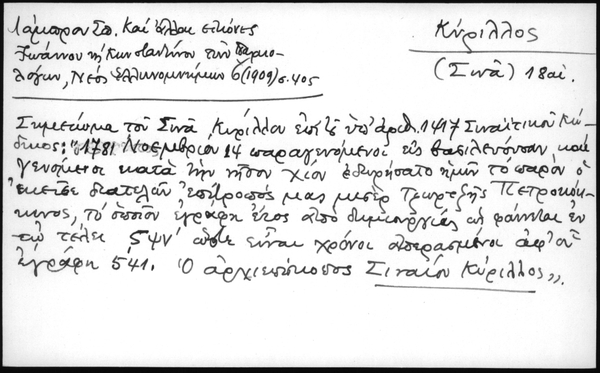 Λάμπρου Σπ. Καί ἄλλαι εἰκόνες
Ἰωάννου τοῦ Κωνσταντίνου τῶν Παλαιο-
λόγων, Νέος Ἑλληνομνήμων 6 (1909) σ. 405
Κύριλλος
(Σινᾶ) 18 αἰ.
Σημείωμα τοῦ Σινᾶ Κυρίλλου ἐπί τοῦ ὑπ' ἀριθ. 1417 Σιναϊτικοῦ Κώ-
δικος: "1781 Νοεμβρίου 14 παραγενόμενοι εἰς βασιλεύουσαν καί
γενόμενοι κατά τήν νῆσον Χίον ἐδωρήσατο ἡμῖν τό παρόν ὁ
ἐκεῖσε διατελῶν ἐπίτροπός μας μισέρ Τζωρτζῆς Πετροκόκ-
κινος, τό ὁποῖον ἐγράφη ἔτος ἀπό δημιουργίας ὡς φαίνεται ἐν
τῷ τέλει ϛψν' ὥστε εἶναι χρόνοι ἀπερασμένοι ἀφ' οὗ
ἐγράφη 541. Ὁ ἀρχιεπίσκοπος Σιναίου Κύριλλος".